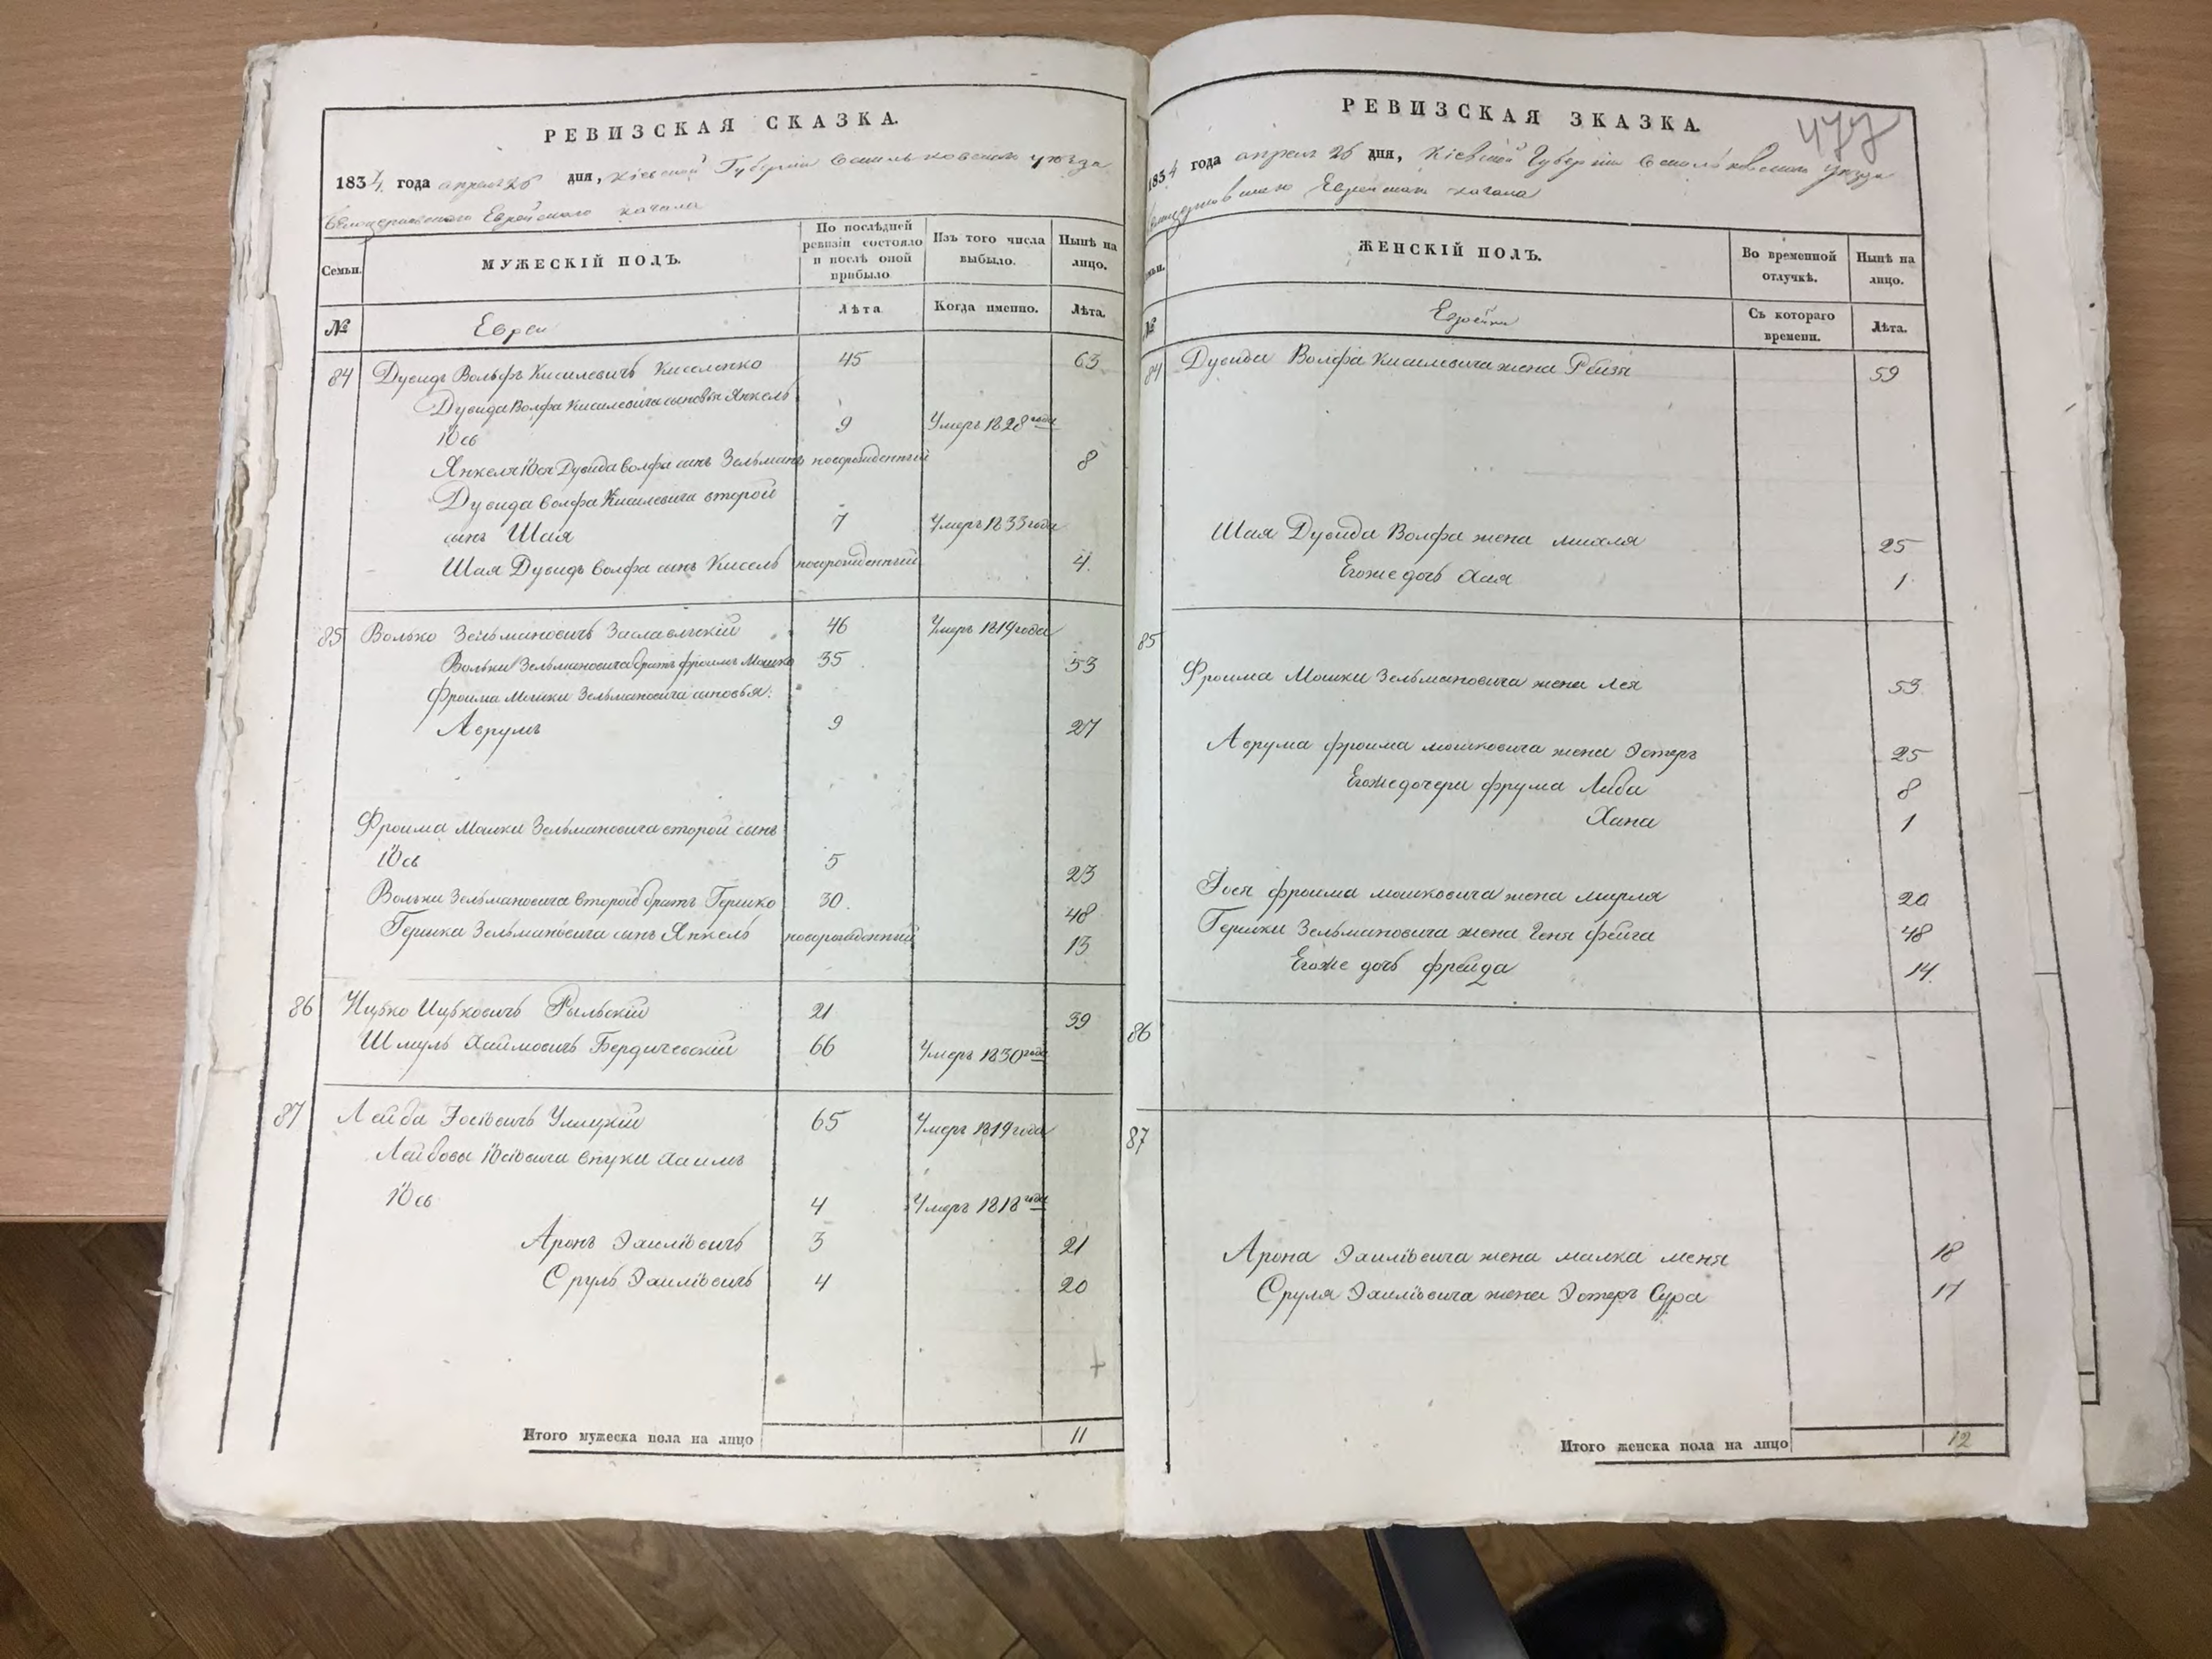 РЕВИЗСКАЯ СКАЗКА.
1834 года апреля 26 дня, Кіевской Губерніи Васильковского уѣзда
Белоцерковского Еврейского кагала
Семьи.
МУЖЕСКІЙ ПОЛЪ.
По послѣдней ревизіи состояло и послѣ оной прибыло
Изъ того числа выбыло.
Нынѣ на лицо.
№
Евреи
Лѣта
Когда именно.
Лѣта.
84 Дувидъ Вольфъ Кисилевичъ Киселенко 45 63
Дувида Волфа Кисилевича сыновья Янкель
Іось 9 Умеръ 1828 года
Янкеля Іося Дувида Волфа сынъ Зельманъ новорожденный 8
Дувида Волфа Кисилевича второй
сынъ Шая 7 Умеръ 1833 года
Шая Дувидъ Волфа сынъ Кисель новорожденный 4.
85 Волько Зельмановичъ Заславльскій 46 Умеръ 1819 года
Вольки Зельмановича братъ Фроимъ Мошко 35 53
Фроима Мошки Зельмановича сыновья:
Аврумъ 9 27
Фроима Мошки Зельмановича второй сынъ
Іось 5 23
Вольки Зельмановича второй братъ Гершко 30. 48
Гершка Зельмановича сынъ Янкель новорожденный 13
86 Ицько Ицьковичъ Рыльскій 21 39
Шмуль Хаимовичъ Бердичевскій 66 Умеръ 1830 года
87 Лейба Іосіовичъ Улицкій 65 Умеръ 1819 года
Лейбовы Іосіовича внуки Хаимъ
Іось 4 Умеръ 1818 года
Аронъ Эхилiовичъ 3 21
Сруль Эхилiовичъ 4 20
Итого мужеска пола на лицо 11
РЕВИЗСКАЯ ЗКАЗКА.
477
1834 года апреля 26 дня, Кіевской Губерніи Васильковского уѣзда
Белоцерковского Еврейского кагала
Семьи.
ЖЕНСКІЙ ПОЛЪ.
Во временной отлучкѣ.
Нынѣ на лицо.
№
Еврейки
Съ котораго времени.
Лѣта.
84 Дувида Волфа Кисилевича жена Рейзя 59
Шая Дувида Волфа жена Михля 25
Егоже дочь Хая 1
85
Фроима Мошки Зельмановича жена Лея 53
Аврума Фроима Мошковича жена Эстеръ 25
Егоже дочери Фрума Либа 8
Хана 1
Іося Фроима Мошковича жена Мирля 20
Гершки Зельмановича жена Геня Фейга 48
Егоже дочь Фрейда 14
86
87
Арона Эхилiовича жена Малка Меня 18
Сруля Эхилiовича жена Эстеръ Сура 17
Итого женска пола на лицо 12